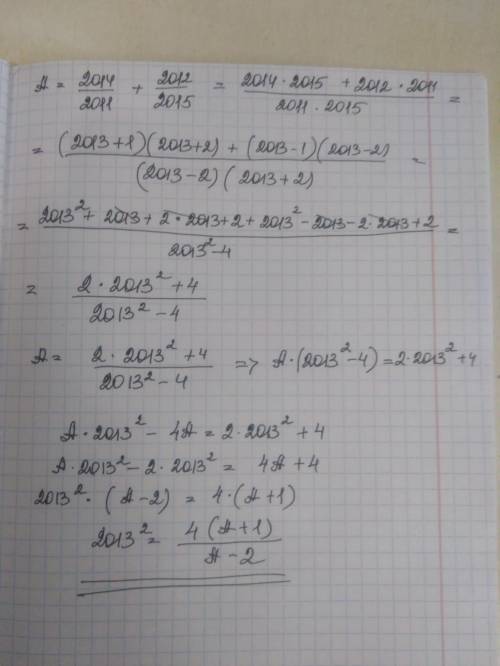 A = 2014/2011 + 2012/2015 = (2014 · 2015 + 2012 · 2011)/(2011 · 2015) =
= ((2013+1)(2013+2) + (2013-1)(2013-2))/((2013-2)(2013+2)) =
= (2013² + 2013 + 2·2013 + 2 + 2013² - 2013 - 2·2013 + 2)/(2013² - 4) =
= (2 · 2013² + 4)/(2013² - 4)
A = (2 · 2013² + 4)/(2013² - 4) => A·(2013² - 4) = 2·2013² + 4
A · 2013² - 4A = 2 · 2013² + 4
A · 2013² - 2 · 2013² = 4A + 4
2013² · (A - 2) = 4·(A + 1)
2013² = 4(A + 1)/(A - 2)